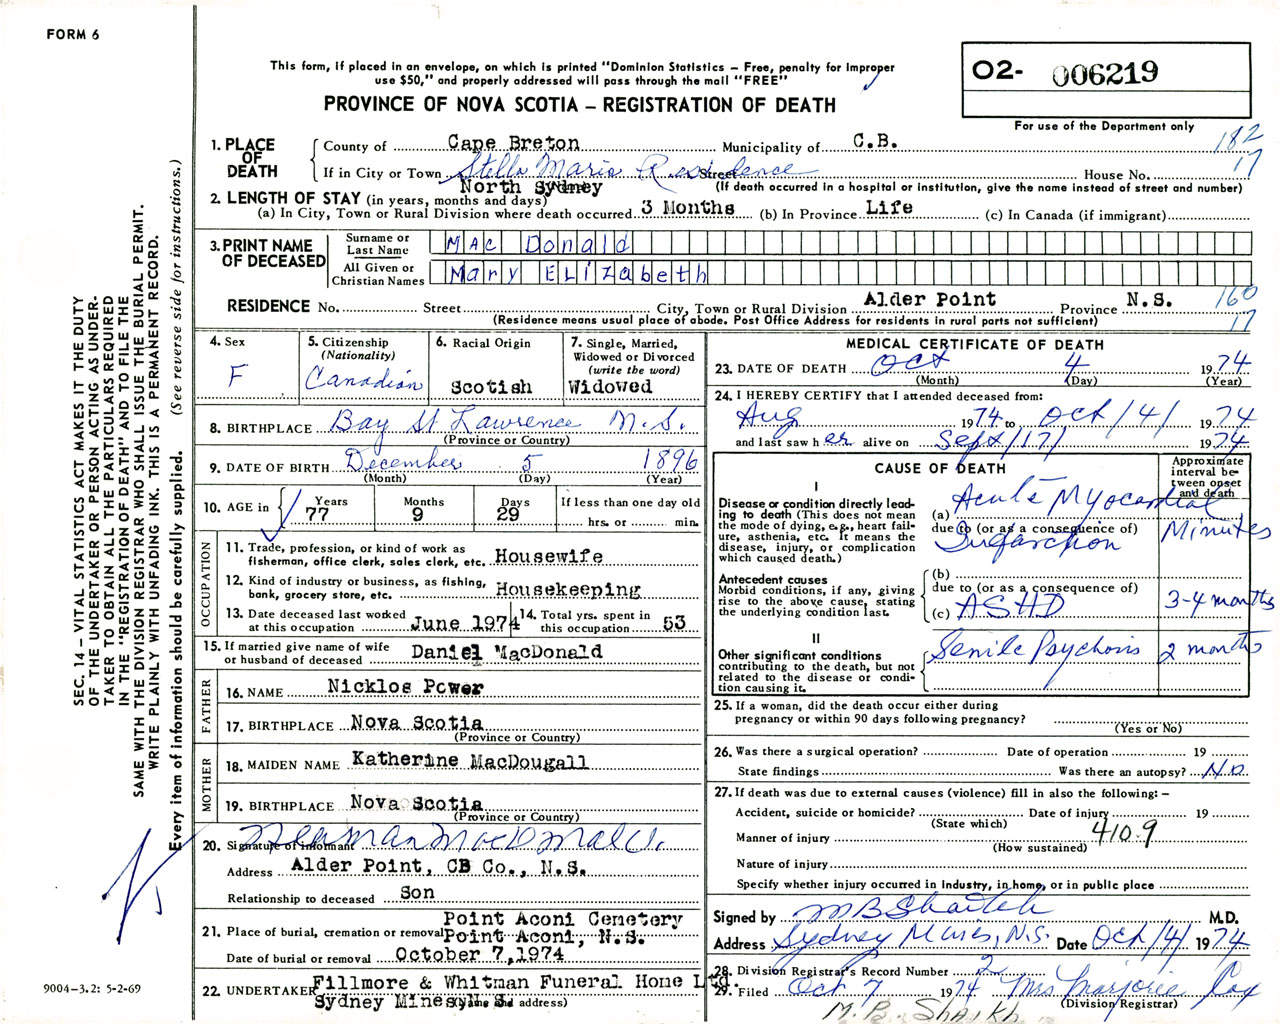 FORM 6
This form, if placed in an envelope, on which is printed "Dominion Statistics – Free, penalty for improper
use $50," and properly addressed will pass through the mail "FREE"
PROVINCE OF NOVA SCOTIA – REGISTRATION OF DEATH
02- 006219
For use of the Department only
1. PLACE OF DEATH
County of Cape Breton Municipality of C.B. 182
If in City or Town Stella Maris Residence Street House No. 17
North Sydney (If death occurred in a hospital or institution, give the name instead of street and number)
2. LENGTH OF STAY (in years, months and days)
(a) In City, Town or Rural Division where death occurred 3 Months (b) In Province Life (c) In Canada (if immigrant)
3. PRINT NAME OF DECEASED
Surname or Last Name Mac Donald
All Given or Christian Names Mary ELizabeth
RESIDENCE No. Street City, Town or Rural Division Alder Point Province N.S. 160
(Residence means usual place of abode. Post Office Address for residents in rural parts not sufficient) 17
4. Sex F
5. Citizenship (Nationality) Canadian
6. Racial Origin Scotish
7. Single, Married, Widowed or Divorced (write the word) Widowed
8. BIRTHPLACE Bay St Lawrence N.S.
(Province or Country)
9. DATE OF BIRTH December 5 1896
(Month) (Day) (Year)
10. AGE in Years 77 Months 9 Days 29 If less than one day old hrs. or min.
OCCUPATION
11. Trade, profession, or kind of work as fisherman, office clerk, sales clerk, etc. Housewife
12. Kind of industry or business, as fishing, bank, grocery store, etc. Housekeeping
13. Date deceased last worked at this occupation June 1974
14. Total yrs. spent in this occupation 53
15. If married give name of wife or husband of deceased Daniel MacDonald
FATHER
16. NAME Nicklos Power
17. BIRTHPLACE Nova Scotia
(Province or Country)
MOTHER
18. MAIDEN NAME Katherine MacDougall
19. BIRTHPLACE Nova Scotia
(Province or Country)
20. Signature of informant MacDonald
Address Alder Point, CB Co., N.S.
Relationship to deceased Son
21. Place of burial, cremation or removal Point Aconi Cemetery
Point Aconi, N.S.
Date of burial or removal October 7, 1974
22. UNDERTAKER Fillmore & Whitman Funeral Home Ltd.
Sydney Mines, N.S. (Name and address)
MEDICAL CERTIFICATE OF DEATH
23. DATE OF DEATH Oct 4 1974
(Month) (Day) (Year)
24. I HEREBY CERTIFY that I attended deceased from:
Aug 1974 to Oct/4/ 1974
and last saw her alive on Sept/17/ 1974
CAUSE OF DEATH
Approximate interval between onset and death
I
Disease or condition directly leading to death (This does not mean the mode of dying, e.g., heart failure, asthenia, etc. It means the disease, injury, or complication which caused death.)
(a) Acute Myocardial
due to (or as a consequence of)
Infarction Minutes
Antecedent causes
Morbid conditions, if any, giving rise to the above cause, stating the underlying condition last.
(b)
due to (or as a consequence of)
(c) ASHD 3-4 months
II
Other significant conditions contributing to the death, but not related to the disease or condition causing it.
Senile Psychosis 2 months
25. If a woman, did the death occur either during pregnancy or within 90 days following pregnancy?
(Yes or No)
26. Was there a surgical operation? Date of operation 19
State findings Was there an autopsy? No
27. If death was due to external causes (violence) fill in also the following: –
Accident, suicide or homicide? Date of injury 19
(State which)
Manner of injury 410.9
(How sustained)
Nature of injury
Specify whether injury occurred in industry, in home, or in public place
Signed by M B Shaikh M.D.
Address Sydney Mines, N.S. Date Oct/4/ 1974
28. Division Registrar's Record Number 2
29. Filed Oct 7 1974 Mrs Marjorie Cox
(Division Registrar)
M. B. SHAIKH
SEC. 14 – VITAL STATISTICS ACT MAKES IT THE DUTY
OF THE UNDERTAKER OR PERSON ACTING AS UNDER-
TAKER TO OBTAIN ALL THE PARTICULARS REQUIRED
IN THE "REGISTRATION OF DEATH" AND TO FILE THE
SAME WITH THE DIVISION REGISTRAR WHO SHALL ISSUE THE BURIAL PERMIT.
WRITE PLAINLY WITH UNFADING INK. THIS IS A PERMANENT RECORD.
Every item of information should be carefully supplied. (See reverse side for instructions.)
9004-3.2: 5-2-69